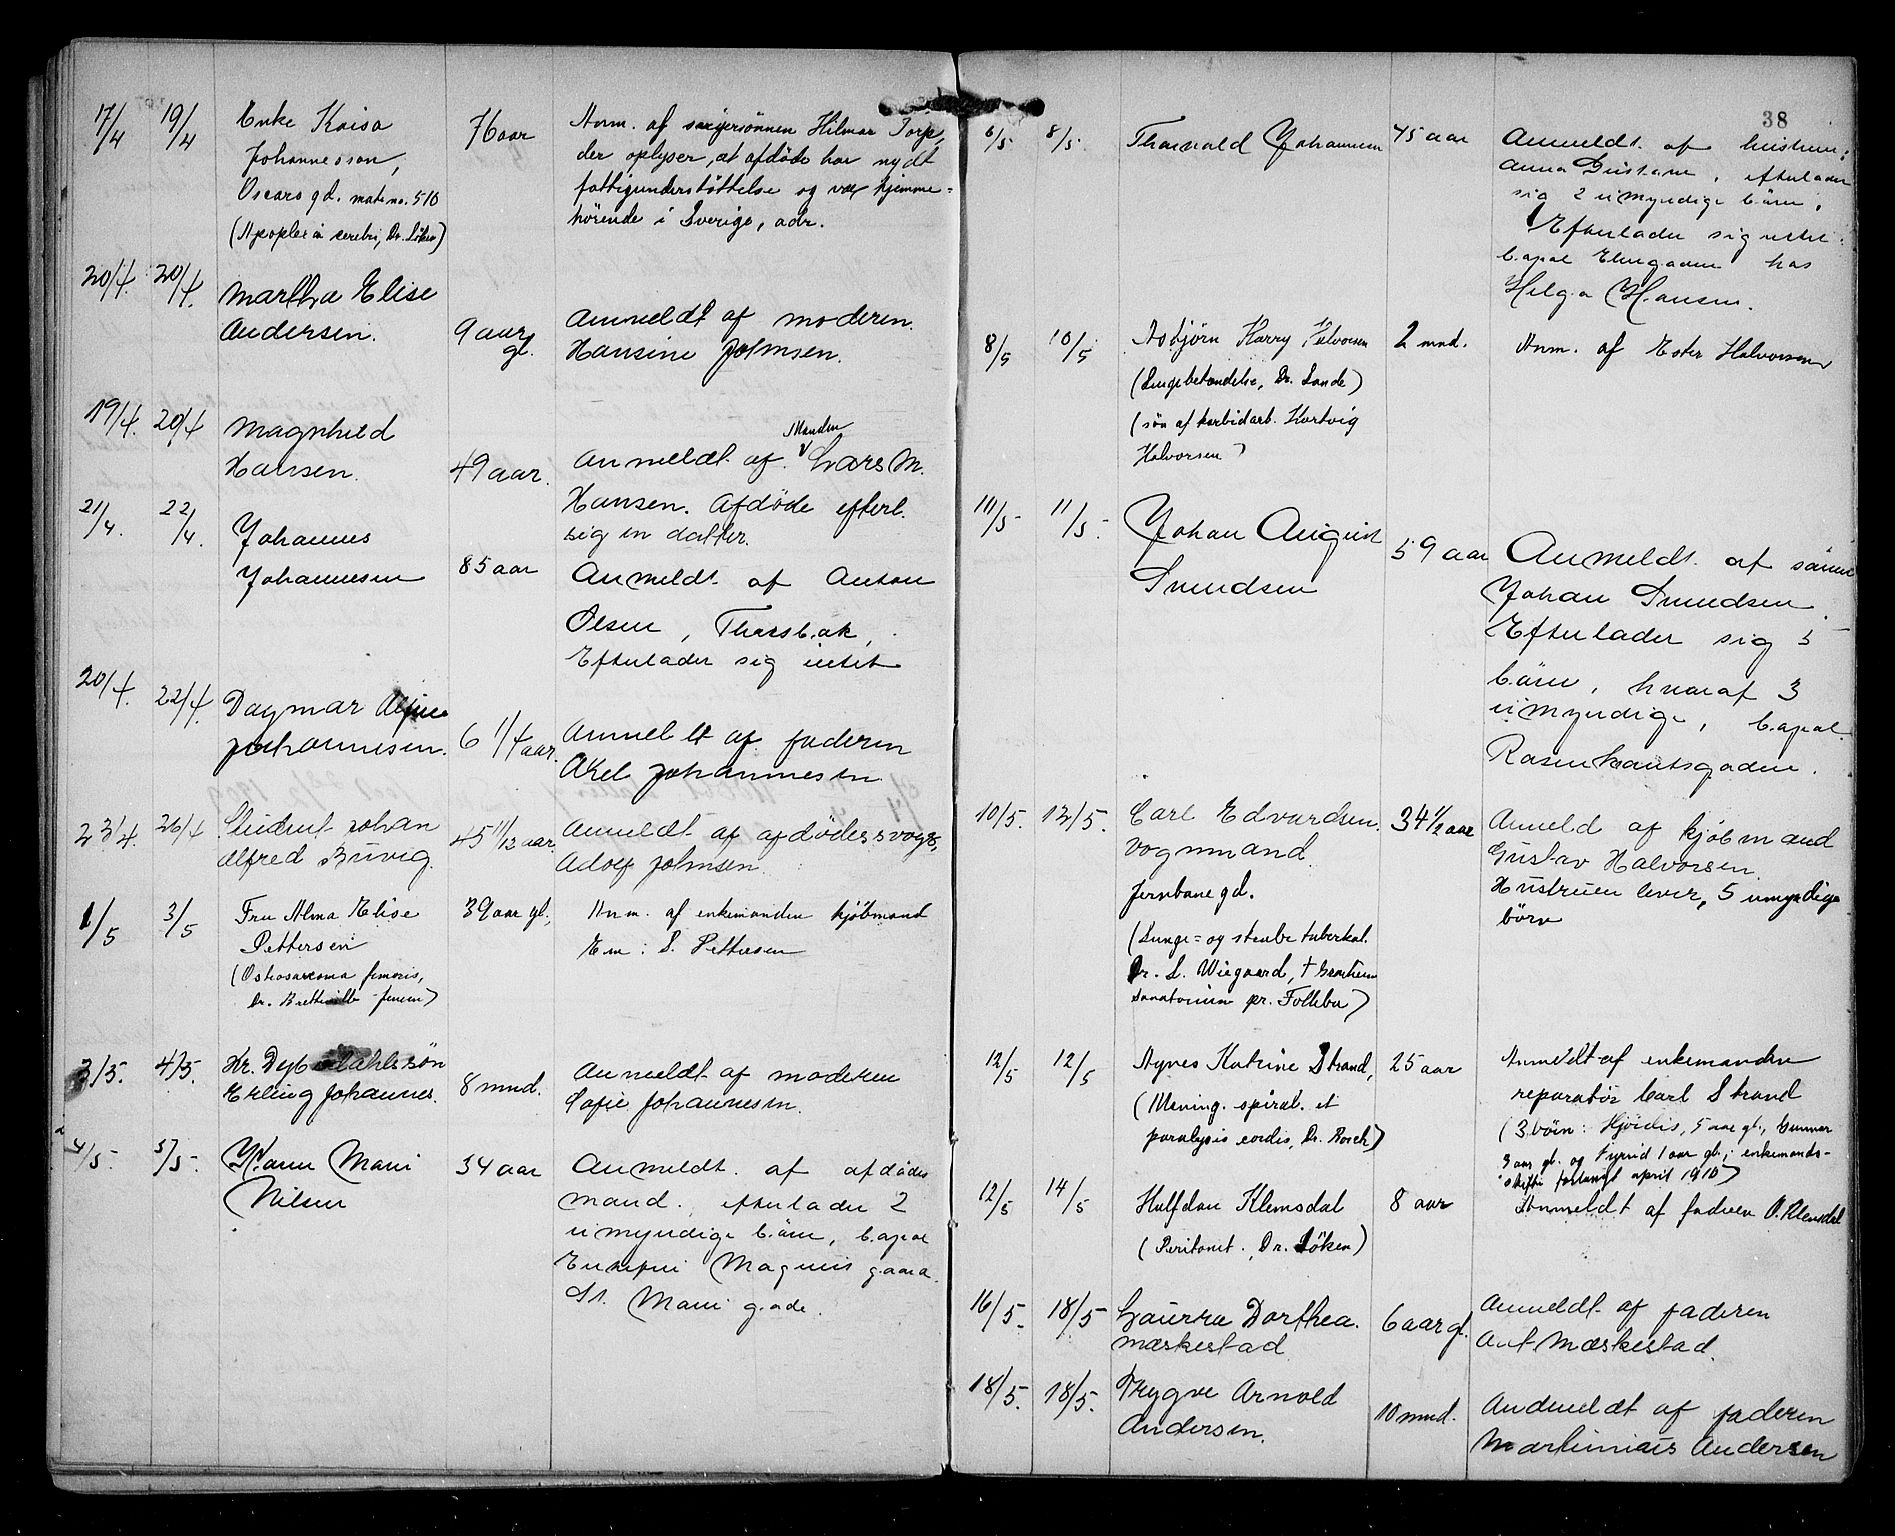 17/4 19/4 Enke Kaisa 76 aar Anm. af svigersönnen Hilmar Torp,
Johannesson, der oplyser, at afdöde har nydt
Oscars gd. matr.no. 510 fattigunderstöttelse og var hjemme-
(Apoplexia cerebri, Dr. Löken) hörende i Sverige, adr.
20/4. 20/4. Martha Elise Anmeldt af moderen.
Andersen. 9 aar gl. Hansine Johnsen.
19/4. 20/4 Magnhild Manden
Hansen. 49 aar. Anmeldt af Lars M.
Hansen. Afdöde efterl.
sig en datter.
21/4. 22/4. Johannes
Johannesen 85 aar Anmeldt af Anton
Olsen, Thorsbak,
Efterlader sig intet
20/4. 22/4. Dagmar
Johannesen. 6 1/4 aar. Anmeldt af faderen
Axel Johannesen
23/4. 26/4 Johan 45 11/12 aar. Anmeldt af afdödes svoger,
Alfred Buvig. Adolf Johnsen.
1/5 3/5 Fru Alma Elise 39 aar gl., Anm. af enkemanden kjöbmand
Pettersen Em. S. Pettersen
(Osteosarcoma femoris,
Dr. Brettville-Jensen)
3/5. 4/5. Hr. Dybdahls sön
Erling Johannes. 8 mnd. Anmeldt af moderen
Sofie Johannesen.
4/5. 5/5. Karen Marie 34 aar Anmeldt af afdödes
Nilsen mand, efterlader 2
umyndige børn, bopæl
Magnus gaard
St. Marie gade.
38
6/5 8/5. Thorvald Johannesen 45 aar Anmeldt af hustruen:
Anna Gustava, efterlader
sig 2 umyndige børn.
Efterlader sig intet.
bopæl Elvegaden hos
Helga Hansen.
8/5 10/5 Asbjörn Harry Halvorsen 2 mnd. Anm. af Ester Halvorsen
(Lungebetændelse, Dr. Sande)
(sön af karbidarb. Hartvig
Halvorsen)
10/5 11/5. Johan August 59 aar Anmeldt af sönnen
Svendsen Johan Svendsen.
Efterlader sig 5
børn, hvoraf 3
umyndige, bopæl
Rosenkrantsgaden.
10/5. 12/5. Carl Edvardsen. 34 1/2 aar Anmeld af kjöbmand
Vognmand. Gustav Halvorsen.
Jernbane gd. Hustruen lever, 5 umyndige
börn
(Lunge- og strube tuberkul.
Dr. S. Wiegaard, † Grantheim
Sanatorium pr. Follebu)
12/5 12/5 Agnes Katrine Strand, 25 aar Anmeldt af enkemanden
reparatör Carl Strand
(Mening. spinal. et (3 börn: Hjördis, 5 aar gl., Gunnar
paralysis cordis, Dr. Borch) 3 aar gl. og Tyrid 1 aar gl.; enkemands-
skifte forlangt april 1910)
12/5 14/5 Halfdan Klemsdal 8 aar Anmeldt af faderen O. Klemsdal
(Peritonit. Dr. Löken)
16/5. 18/5 Laurra Dorthea. 6 aar gl. Anmeldt af faderen
Mæskestad Ant. Mæskestad.
18/5. 18/5. Trygve Arnold
Andersen. 10 mnd. Andmeldt af faderen
Martinius Andersen